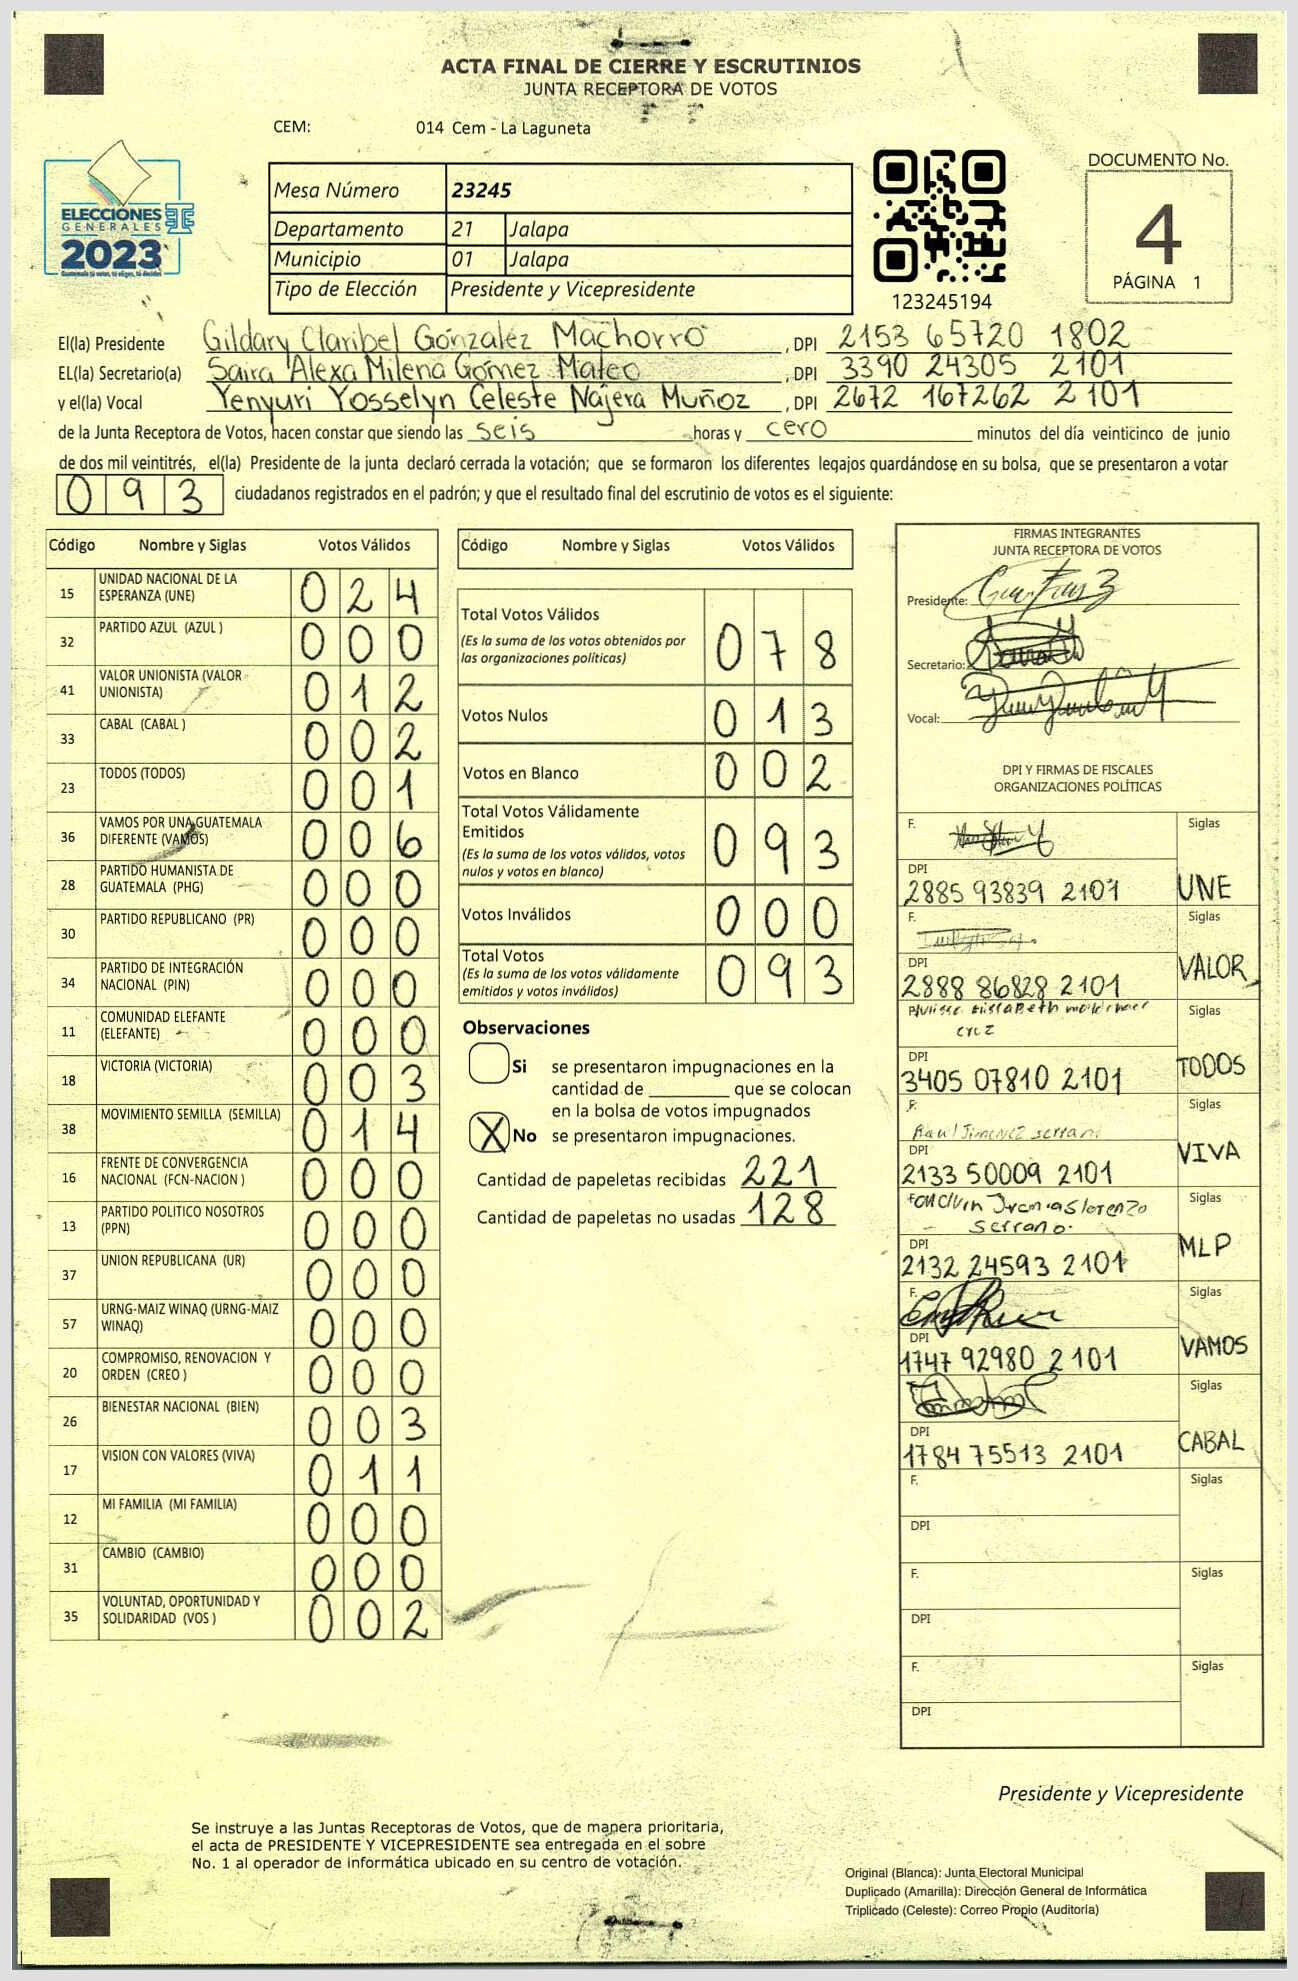 ACTA FINAL DE CIERRE Y ESCRUTINIOS
JUNTA RECEPTORA DE VOTOS
CEM: 014 Cem - La Laguneta
ELECCIONES
GENERALES
2023
Mesa Número 23245
Departamento 21 Jalapa
Municipio 01 Jalapa
Tipo de Elección Presidente y Vicepresidente
123245194
DOCUMENTO No.
4
PÁGINA 1
El(la) Presidente Gildary Claribel Gónzaléz Machorro, DPI 2153 65720 1802
EL(la) Secretario(a) Saira Alexa Milena Gómez Mateo, DPI 3390 24305 2101
y el(la) Vocal Yenyuri Yosselyn Celeste Nájera Muñoz, DPI 2672 167262 2101
de la Junta Receptora de Votos, hacen constar que siendo las seis horas y cero minutos del día veinticinco de junio
de dos mil veintitrés, el(la) Presidente de la junta declaró cerrada la votación; que se formaron los diferentes legajos guardándose en su bolsa, que se presentaron a votar
093 ciudadanos registrados en el padrón; y que el resultado final del escrutinio de votos es el siguiente:
Código Nombre y Siglas Votos Válidos
15 UNIDAD NACIONAL DE LA ESPERANZA (UNE) 024
32 PARTIDO AZUL (AZUL ) 000
41 VALOR UNIONISTA (VALOR UNIONISTA) 012
33 CABAL (CABAL ) 002
23 TODOS (TODOS) 001
36 VAMOS POR UNA GUATEMALA DIFERENTE (VAMOS) 006
28 PARTIDO HUMANISTA DE GUATEMALA (PHG) 000
30 PARTIDO REPUBLICANO (PR) 000
34 PARTIDO DE INTEGRACIÓN NACIONAL (PIN) 000
11 COMUNIDAD ELEFANTE (ELEFANTE) 000
18 VICTORIA (VICTORIA) 003
38 MOVIMIENTO SEMILLA (SEMILLA) 014
16 FRENTE DE CONVERGENCIA NACIONAL (FCN-NACION ) 000
13 PARTIDO POLITICO NOSOTROS (PPN) 000
37 UNION REPUBLICANA (UR) 000
57 URNG-MAIZ WINAQ (URNG-MAIZ WINAQ) 000
20 COMPROMISO, RENOVACION Y ORDEN (CREO ) 000
26 BIENESTAR NACIONAL (BIEN) 003
17 VISION CON VALORES (VIVA) 011
12 MI FAMILIA (MI FAMILIA) 000
31 CAMBIO (CAMBIO) 000
35 VOLUNTAD, OPORTUNIDAD Y SOLIDARIDAD (VOS ) 002
Código Nombre y Siglas Votos Válidos
Total Votos Válidos 078
(Es la suma de los votos obtenidos por
las organizaciones políticas)
Votos Nulos 013
Votos en Blanco 002
Total Votos Válidamente
Emitidos 093
(Es la suma de los votos válidos, votos
nulos y votos en blanco)
Votos Inválidos 000
Total Votos 093
(Es la suma de los votos válidamente
emitidos y votos inválidos)
Observaciones
Si se presentaron impugnaciones en la
cantidad de ________ que se colocan
en la bolsa de votos impugnados
X No se presentaron impugnaciones.
Cantidad de papeletas recibidas 221
Cantidad de papeletas no usadas 128
FIRMAS INTEGRANTES
JUNTA RECEPTORA DE VOTOS
Presidente:
Secretario:
Vocal:
DPI Y FIRMAS DE FISCALES
ORGANIZACIONES POLÍTICAS
F. Siglas
DPI
2885 93839 2101 UNE
F. Siglas
DPI
2888 86828 2101 VALOR
Siglas
cruz
DPI
3405 07810 2101 TODOS
F. Siglas
Raul Jimenez serrano
DPI
2133 50009 2101 VIVA
Siglas
lorenzo
serrano.
DPI
2132 24593 2101 MLP
F. Siglas
DPI
1747 92980 2101 VAMOS
Siglas
DPI
1784 75513 2101 CABAL
F. Siglas
DPI
F. Siglas
DPI
F. Siglas
DPI
Presidente y Vicepresidente
Se instruye a las Juntas Receptoras de Votos, que de manera prioritaria,
el acta de PRESIDENTE Y VICEPRESIDENTE sea entregada en el sobre
No. 1 al operador de informática ubicado en su centro de votación.
Original (Blanca): Junta Electoral Municipal
Duplicado (Amarilla): Dirección General de Informática
Triplicado (Celeste): Correo Propio (Auditoría)